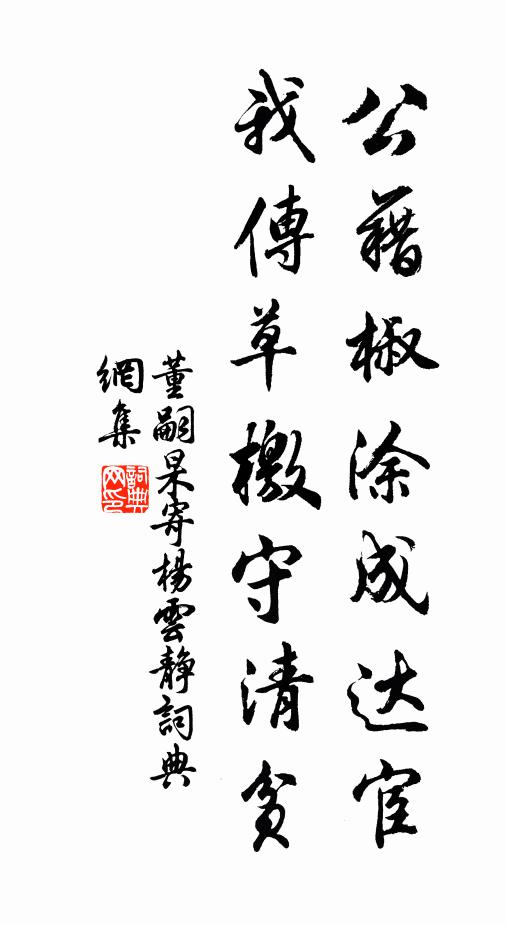 公藉椒涂成达宦
我傳草檄守清貧
董嗣杲寄楊雲靜詞典
網集
詞典
网印